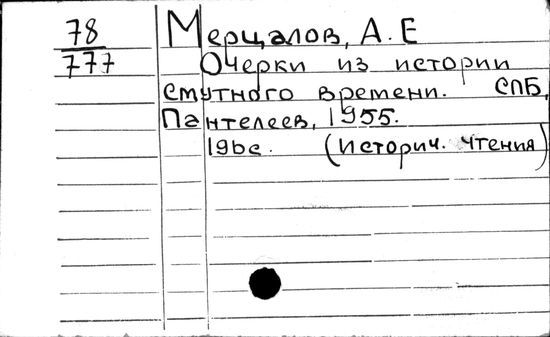 78
777
Мерцалов, А. Е
Очерки из истории
смутного времени. СПБ,
Пантелеев, 1955.
196с. (историч. чтения)